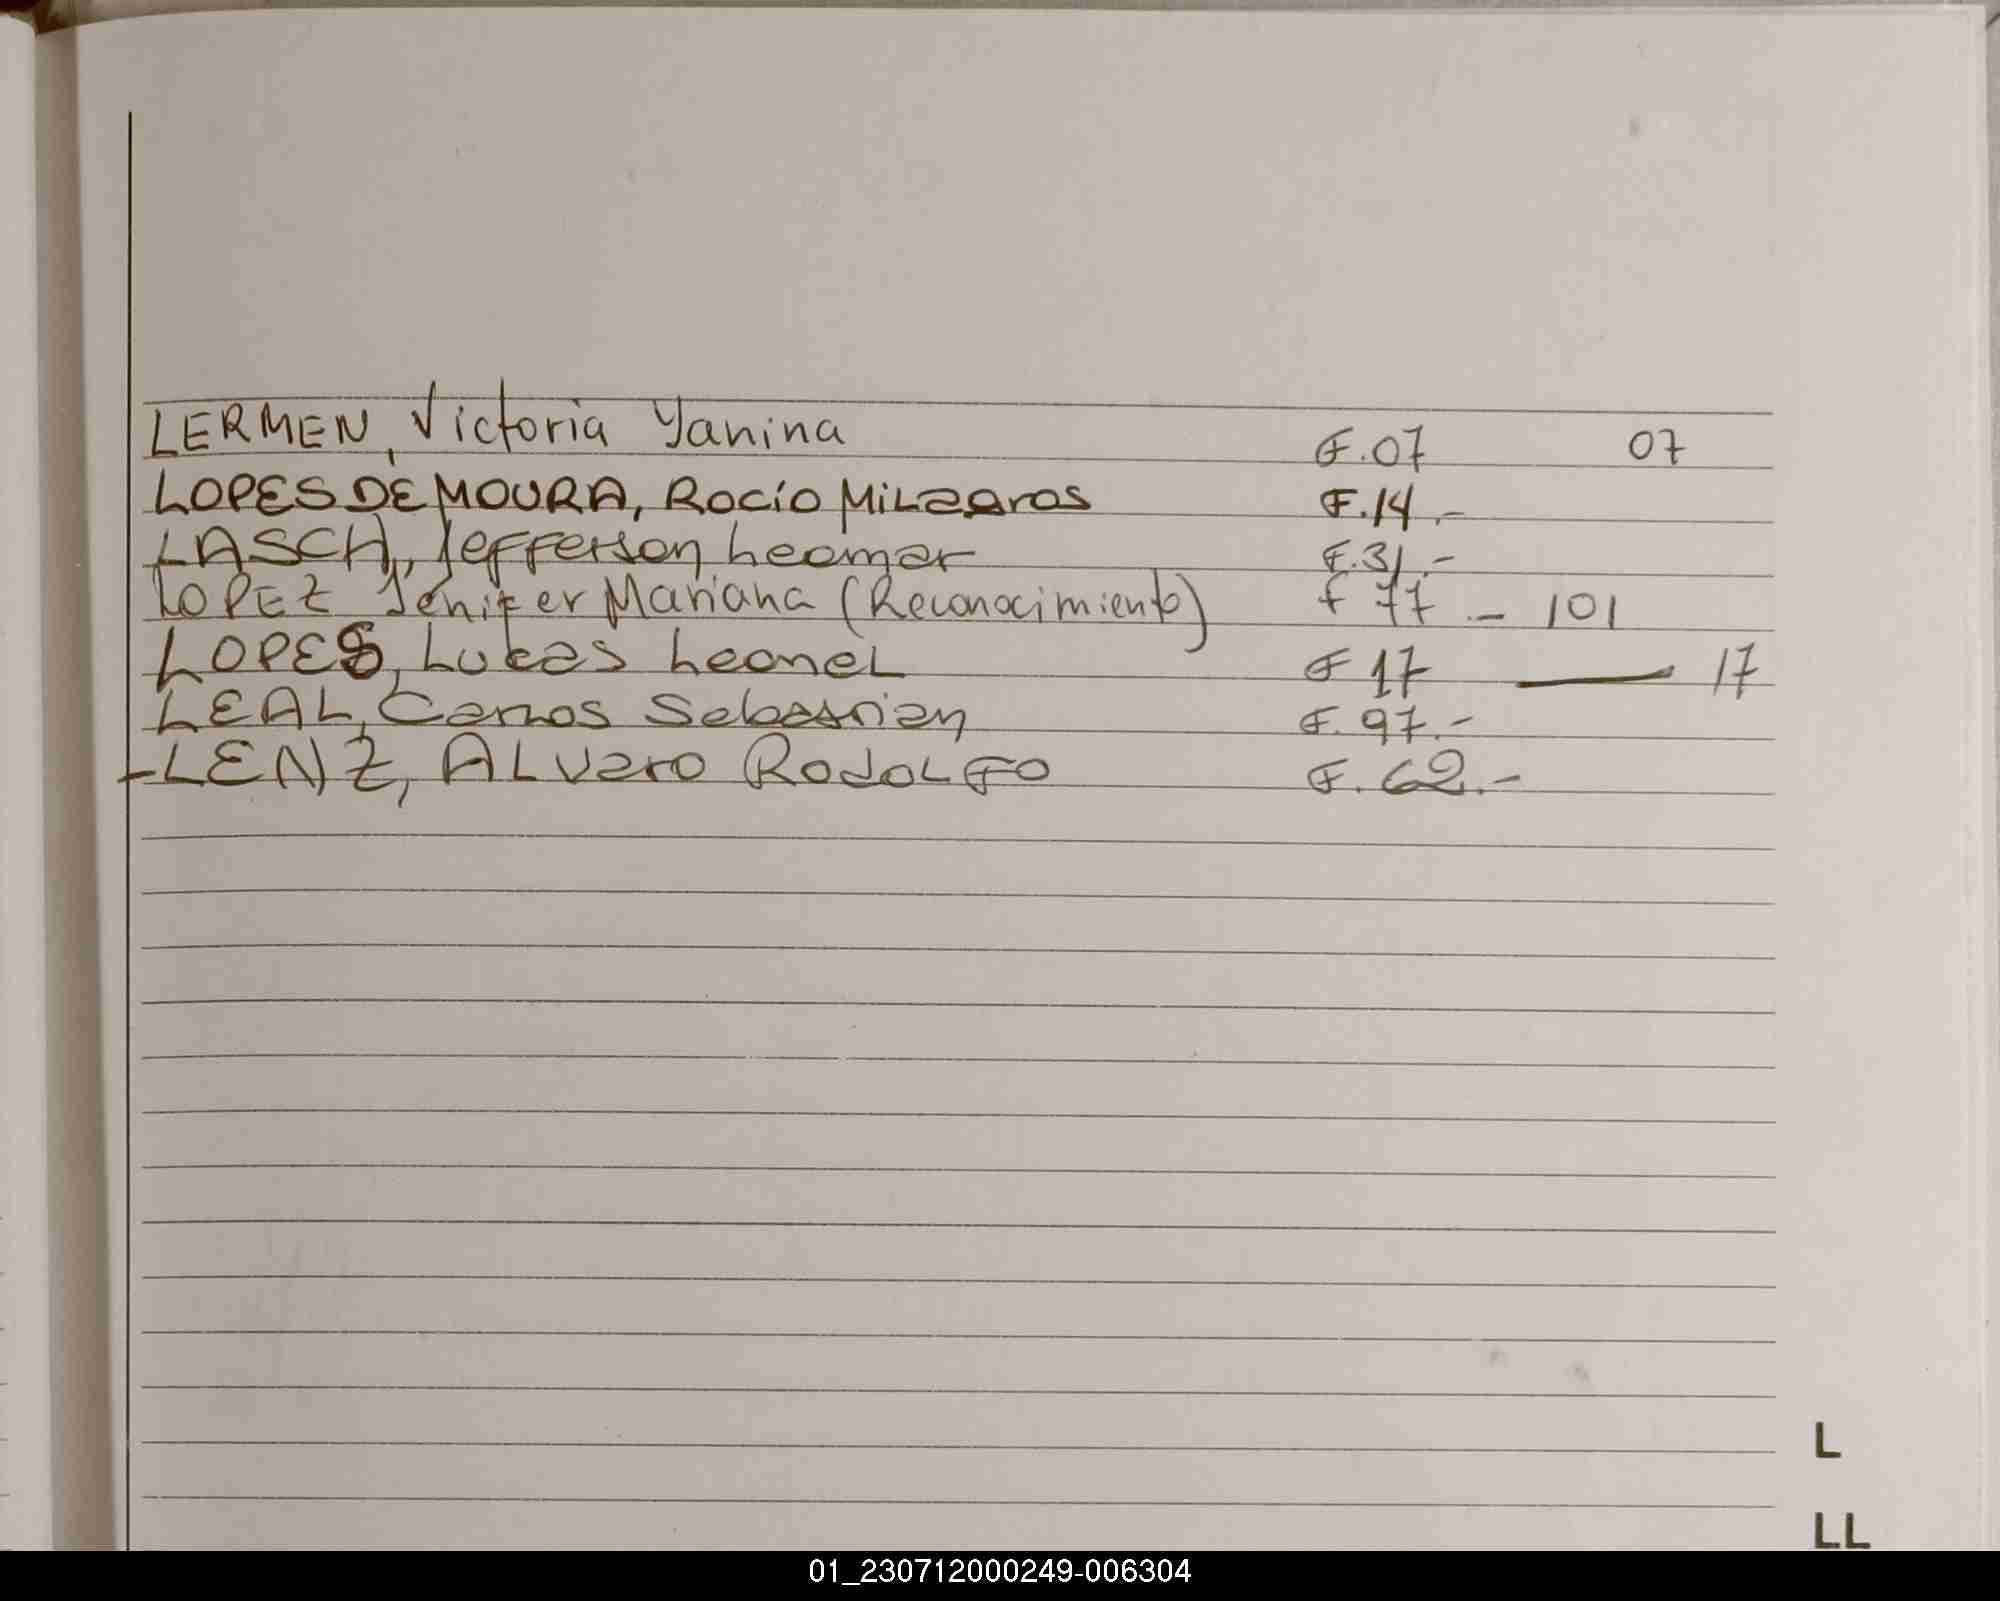 LERMEN, Victoria Yanina F.07 07
LOPES DE MOURA, Rocío Milagros F.14.-
LASCH, Jefferson Leomar F.31.-
LOPEZ Jenifer Mariana (Reconocimiento) f 77 - 101
LOPES, Lucas Leonel F 17 — 17
LEAL, Carlos Sebastian F.97.-
-LENZ, Alvaro Rodolfo F.62.-
L
LL
01_230712000249-006304